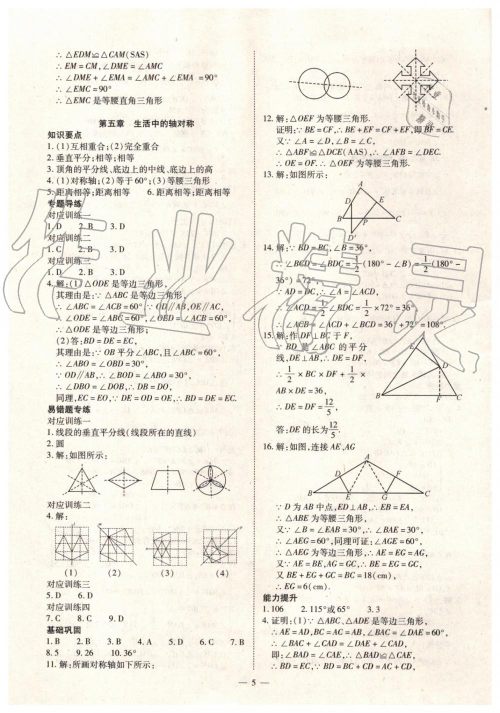 ∴ △EDM≌△CAM(SAS)
∴ EM=CM,∠DME=∠AMC
∴ ∠DME+∠EMA=∠AMC+∠EMA=90°
∴ ∠EMC=90°
∴ △EMC是等腰直角三角形
第五章 生活中的轴对称
知识要点
1.(1)互相重合;(2)完全重合
2.垂直平分;相等;相等
3.顶角的平分线、底边上的中线、底边上的高
4.(1)对称轴;(2)等于60°;(3)等腰三角形
5.距离相等;距离相等 6.距离相等;距离相等
专题导练
对应训练一
1.D 2.B 3.D
对应训练二
1.C 2.B 3.D
对应训练三
1.D 2.B 3.D
4.解:(1)△ODE是等边三角形,
其理由是:∵△ABC是等边三角形,
∴∠ABC=∠ACB=60°∵OD∥AB,OE∥AC,
∴∠ODE=∠ABC=60°,∠OED=∠ACB=60°,
∴△ODE是等边三角形;
(2)答:BD=DE=EC,
其理由是:∵OB平分∠ABC,且∠ABC=60°,
∴∠ABO=∠OBD=30°,
∵OD∥AB,∴∠BOD=∠ABO=30°,
∴∠DBO=∠DOB,∴DB=DO,
同理,EC=EO,∵DE=OD=OE,∴BD=DE=EC.
易错题专练
对应训练一
1.线段的垂直平分线(线段所在的直线)
2.圆
3.解:如图所示:
对应训练二
4.解:
(1) (2) (3) (4)
对应训练三
5.D 6.D
对应训练四
7.C 8.C 9.D
基础巩固
1.B 2.B 3.B 4.A 5.D 6.D 7.B
8.5 9.26 10.36°
11.解:所画对称轴如下所示:
12.解:△OEF为等腰三角形.
证明:∵BE=CF,∴BE+EF=CF+EF,即BF=CE.
又∵∠A=∠D,∠B=∠C,
∴△ABF≌△DCE(AAS),∴∠AFB=∠DEC.
∴OE=OF.∴△OEF为等腰三角形.
13.解:如图所示:
A
D E
B P C
D′
14.解:∵BD=BC,∠B=36°,
∴∠BCD=∠BDC=1/2(180°-∠B)=1/2(180°-
36°)=72°,
∵AD=DC,∴∠A=∠ACD,
∴∠ACD=1/2∠BDC=1/2×72°=36°,
∴∠ACB=∠ACD+∠BCD=36°+72°=108°.
15.解:作DF⊥BC于F,
∵BD是∠ABC的平分
线,DE⊥AB,∴DE=DF,
∴1/2×BC×DF+1/2×
AB×DE=36,
∴DE=DF=12/5,
答:DE的长为12/5.
16.解:如图,连接AE,AG
A
D F
B E G C
∵D为AB中点,ED⊥AB,∴EB=EA,
∴△ABE为等腰三角形,
又∵∠B=∠EAB=30°,∴∠BAE=30°,
∴∠AEG=60°,同理可证:∠AGE=60°,
∴△AEG为等边三角形,∴AE=EG=AG,
又∵AE=BE,AG=GC,∴BE=EG=GC,
又BE+EG+GC=BC=18(cm),
∴EG=6(cm).
能力提升
1.106 2.115°或65° 3.3
4.证明:(1)∵△ABC、△ADE是等边三角形,
∴AE=AD,BC=AC=AB,∠BAC=∠DAE=60°,
∴∠BAC+∠CAD=∠DAE+∠CAD,
即:∠BAD=∠CAE,∴△BAD≌△CAE,
∴BD=EC,∵BD=BC+CD=AC+CD,
— 5 —